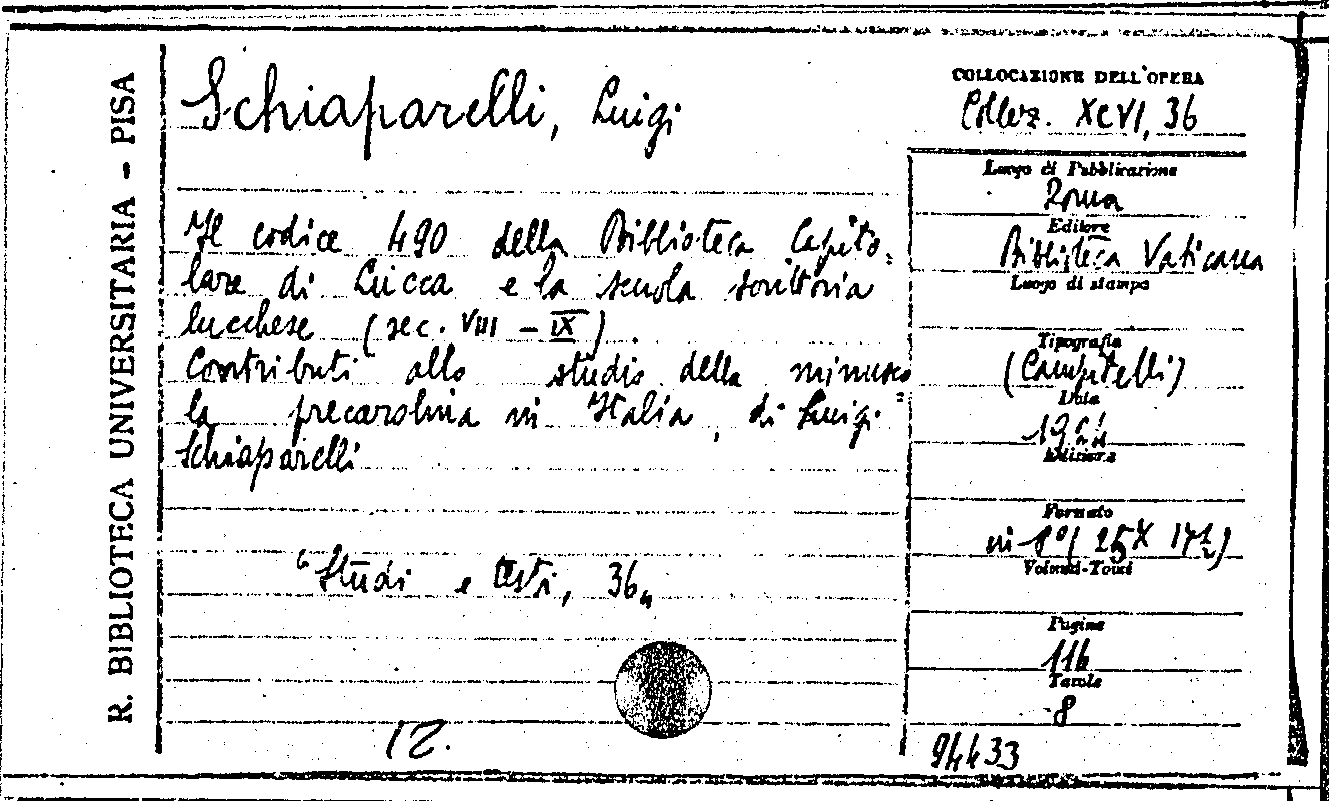 R. BIBLIOTECA UNIVERSITARIA - PISA
Schiaparelli, Luigi
Il codice 490 della Biblioteca Capito=
lare di Lucca e la scuola scrittoria
lucchese (sec. VIII - IX)
Contributi allo studio della minusco
la precarolina in Italia, di Luigi
Schiaparelli
"Studi e testi, 36"
12.
COLLOCAZIONE DELL'OPERA
Collez. XCVI, 36
Luogo di Pubblicazione
Roma
Editore
Biblioteca Vaticana
Luogo di stampa
Tipografia
(Campitelli)
Data
1924
Edizione
Formato
in 8º (25x 17½)
Volumi-Tomi
Pagine
116
Tavole
8
94433